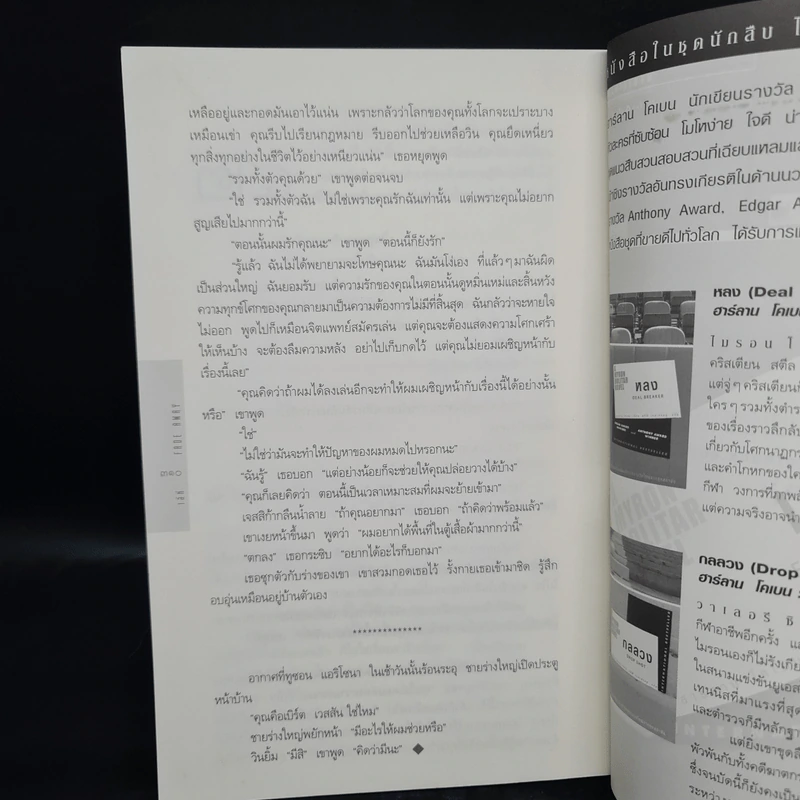 เหลืออยู่และกอดมันเอาไว้แน่น เพราะกลัวว่าโลกของคุณทั้งโลกจะเปราะบาง
เหมือนเช่า คุณรีบไปเรียนกฎหมาย รีบออกไปช่วยเหลือวิน คุณยึดเหนี่ยว
ทุกสิ่งทุกอย่างในชีวิตไว้อย่างเหนียวแน่น" เธอหยุดพูด
"รวมทั้งตัวคุณด้วย" เขาพูดต่อจนจบ
"ใช่ รวมทั้งตัวฉัน ไม่ใช่เพราะคุณรักฉันเท่านั้น แต่เพราะคุณไม่อยาก
สูญเสียไปมากกว่านี้"
"ตอนนั้นผมรักคุณนะ" เขาพูด "ตอนนี้ก็ยังรัก"
"รู้แล้ว ฉันไม่ได้พยายามจะโทษคุณนะ ฉันมันโง่เอง ที่แล้วๆมาฉันผิด
เป็นส่วนใหญ่ ฉันยอมรับ แต่ความรักของคุณในตอนนั้นดูหมิ่นเหม่และสิ้นหวัง
ความทุกข์โศกของคุณกลายมาเป็นความต้องการไม่มีที่สิ้นสุด ฉันกลัวว่าจะหายใจ
ไม่ออก พูดไปก็เหมือนจิตแพทย์สมัครเล่น แต่คุณจะต้องแสดงความโศกเศร้า
ให้เห็นบ้าง จะต้องลืมความหลัง อย่าไปเก็บกดไว้ แต่คุณไม่ยอมเผชิญหน้ากับ
เรื่องนี้เลย"
"คุณคิดว่าถ้าผมได้ลงเล่นอีกจะทำให้ผมเผชิญหน้ากับเรื่องนี้ได้อย่างนั้น
หรือ" เขาพูด
"ใช่"
"ไม่ใช่ว่ามันจะทำให้ปัญหาของผมหมดไปหรอกนะ"
"ฉันรู้" เธอบอก "แต่อย่างน้อยก็จะช่วยให้คุณปล่อยวางได้บ้าง"
"คุณก็เลยคิดว่า ตอนนี้เป็นเวลาเหมาะสมที่ผมจะย้ายเข้ามา"
เจสสิก้ากลืนน้ำลาย "ถ้าคุณอยากมา" เธอบอก "ถ้าคิดว่าพร้อมแล้ว"
เขาเงยหน้าขึ้นมา พูดว่า "ผมอยากได้พื้นที่ในตู้เสื้อผ้ามากกว่านี้"
"ตกลง" เธอกระซิบ "อยากได้อะไรก็บอกมา"
เธอซุกตัวกับร่างของเขา เขาสวมกอดเธอไว้ รั้งกายเธอเข้ามาชิด รู้สึก
อบอุ่นเหมือนอยู่บ้านตัวเอง
**************
อากาศที่ทูซอน แอริโซนา ในเช้าวันนั้นร้อนระอุ ชายร่างใหญ่เปิดประตู
หน้าบ้าน
"คุณคือเบิร์ต เวสสัน ใช่ไหม"
ชายร่างใหญ่พยักหน้า "มีอะไรให้ผมช่วยหรือ"
วินยิ้ม "มีสิ" เขาพูด "คิดว่ามีนะ" ◆
FADE AWAY
นังสือในชุดนักสืบ
ฮาร์ลาน โคเบน นักเขียนรางวัล
ละครที่ซับซ้อน โมโหง่าย ใจดี
แนวสืบสวนสอบสวนที่เฉียบแหลมและ
ชิงรางวัลอันทรงเกียรติในด้านนว
รางวัล Anthony Award, Edgar A
นังสือชุดที่ขายดีไปทั่วโลก ได้รับการแ
หลง (Deal
ฮาร์ลาน โคเบน
ไมรอน
คริสเตียน สตีล
แต่จู่ๆคริสเตียน
ใครๆรวมทั้งตำร
ของเรื่องราวลึกลับ
เกี่ยวกับโศกนาฏก
และคำโกหกของใค
กีฬา วงการที่ภาพ
แต่ความจริงอาจนำ
หลง
DEAL BREAKER
กลลวง (Drop
ฮาร์ลาน โคเบน
วาเลอรี
กีฬาอาชีพอีกครั้ง
ไมรอนเองก็ไม่รังเกีย
ในสนามแข่งขันยูเอส
เทนนิสที่มาแรงที่สุด
และตำรวจก็มีหลักฐาน
แต่ยิ่งเขาขุดลึ
พัวพันกับทั้งคดีฆาตก
ซึ่งจนบัดนี้ก็ยังคงเป็น
ระหว่าง
กลลวง